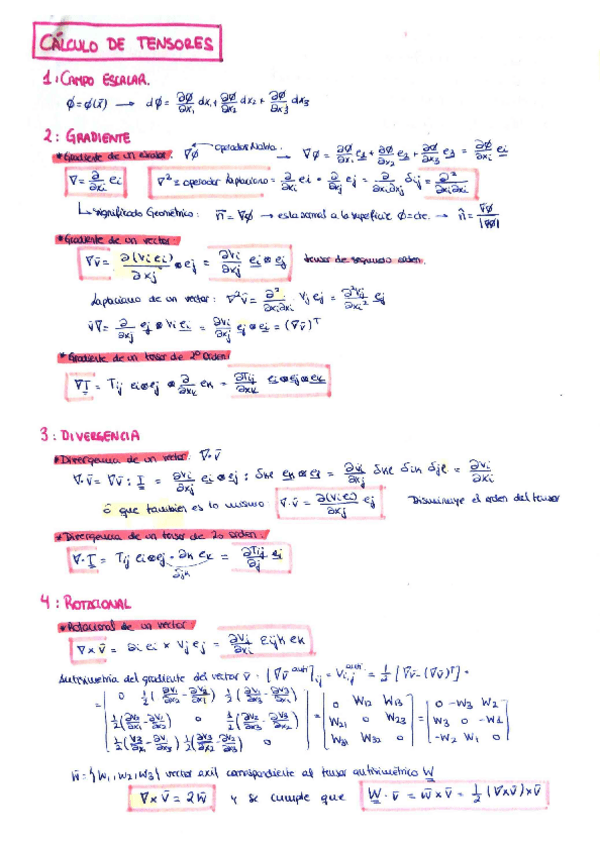 CÁLCULO DE TENSORES
1: CAMPO ESCALAR.
φ = φ(x̄) → dφ = ∂φ/∂x₁ dx₁ + ∂φ/∂x₂ dx₂ + ∂φ/∂x₃ dx₃
2: GRADIENTE
*Gradiente de un escalar: ∇φ ← operador Nabla. → ∇φ = ∂φ/∂x₁ e₁ + ∂φ/∂x₂ e₂ + ∂φ/∂x₃ e₃ = ∂φ/∂xi ei
∇ = ∂/∂xi ei ∇² = operador Laplaciano = ∂/∂xi ei · ∂/∂xj ej = ∂/∂xi∂xj δij = ∂²/∂xi∂xi
↳ significado Geométrico: n̄ = ∇φ → esta normal a la superficie φ = cte. → n̂ = ∇φ/|∇φ|
*Gradiente de un vector:
∇v̄ = ∂(vi ei)/∂xj ⊗ ej = ∂vi/∂xj ei ⊗ ej tensor de segundo orden.
Laplaciano de un vector: ∇²v̄ = ∂²/∂xi∂xi vj ej = ∂²vj/∂xi² ej
v̄∇ = ∂/∂xj ej ⊗ vi ei = ∂vi/∂xj ej ⊗ ei = (∇v̄)ᵀ
*Gradiente de un tensor de 2º Orden:
∇T = Tij ei ⊗ ej ⊗ ∂/∂xk ek = ∂Tij/∂xk ei ⊗ ej ⊗ ek
3: DIVERGENCIA
*Divergencia de un vector: ∇·v̄
∇·v̄ = ∇v̄ : I = ∂vi/∂xj ei ⊗ ej : δkl ek ⊗ el = ∂vi/∂xj δkl δik δjl = ∂vi/∂xi
ó que también es lo mismo: ∇·v̄ = ∂(vi ei)/∂xj ej Disminuye el orden del tensor
*Divergencia de un tensor de 2o orden:
∇·T = Tij ei ⊗ ej · ∂k ek = ∂Tij/∂j ei
δjk
4: ROTACIONAL
*Rotacional de un vector:
∇×v̄ = ∂i ei × vj ej = ∂vj/∂xi εijk ek
Antisimetría del gradiente del vector v̄: [∇v̄ anti]ij = vi,j anti = 1/2 [∇v̄ - (∇v̄)ᵀ] =
= [0 1/2(∂v₁/∂x₂ - ∂v₂/∂x₁) 1/2(∂v₁/∂x₃ - ∂v₃/∂x₁)] = [0 W12 W13] = [0 -W3 W2]
[1/2(∂v₂/∂x₁ - ∂v₁/∂x₂) 0 1/2(∂v₂/∂x₃ - ∂v₃/∂x₂)] [W21 0 W23] [W3 0 -W1]
[1/2(∂v₃/∂x₁ - ∂v₁/∂x₃) 1/2(∂v₃/∂x₂ - ∂v₂/∂x₃) 0] [W31 W32 0] [-W2 W1 0]
w̄ = {W1, W2, W3} vector axil correspondiente al tensor antisimétrico W
∇×v̄ = 2w̄ y se cumple que W·v̄ = w̄×v̄ = 1/2 (∇×v̄)×v̄